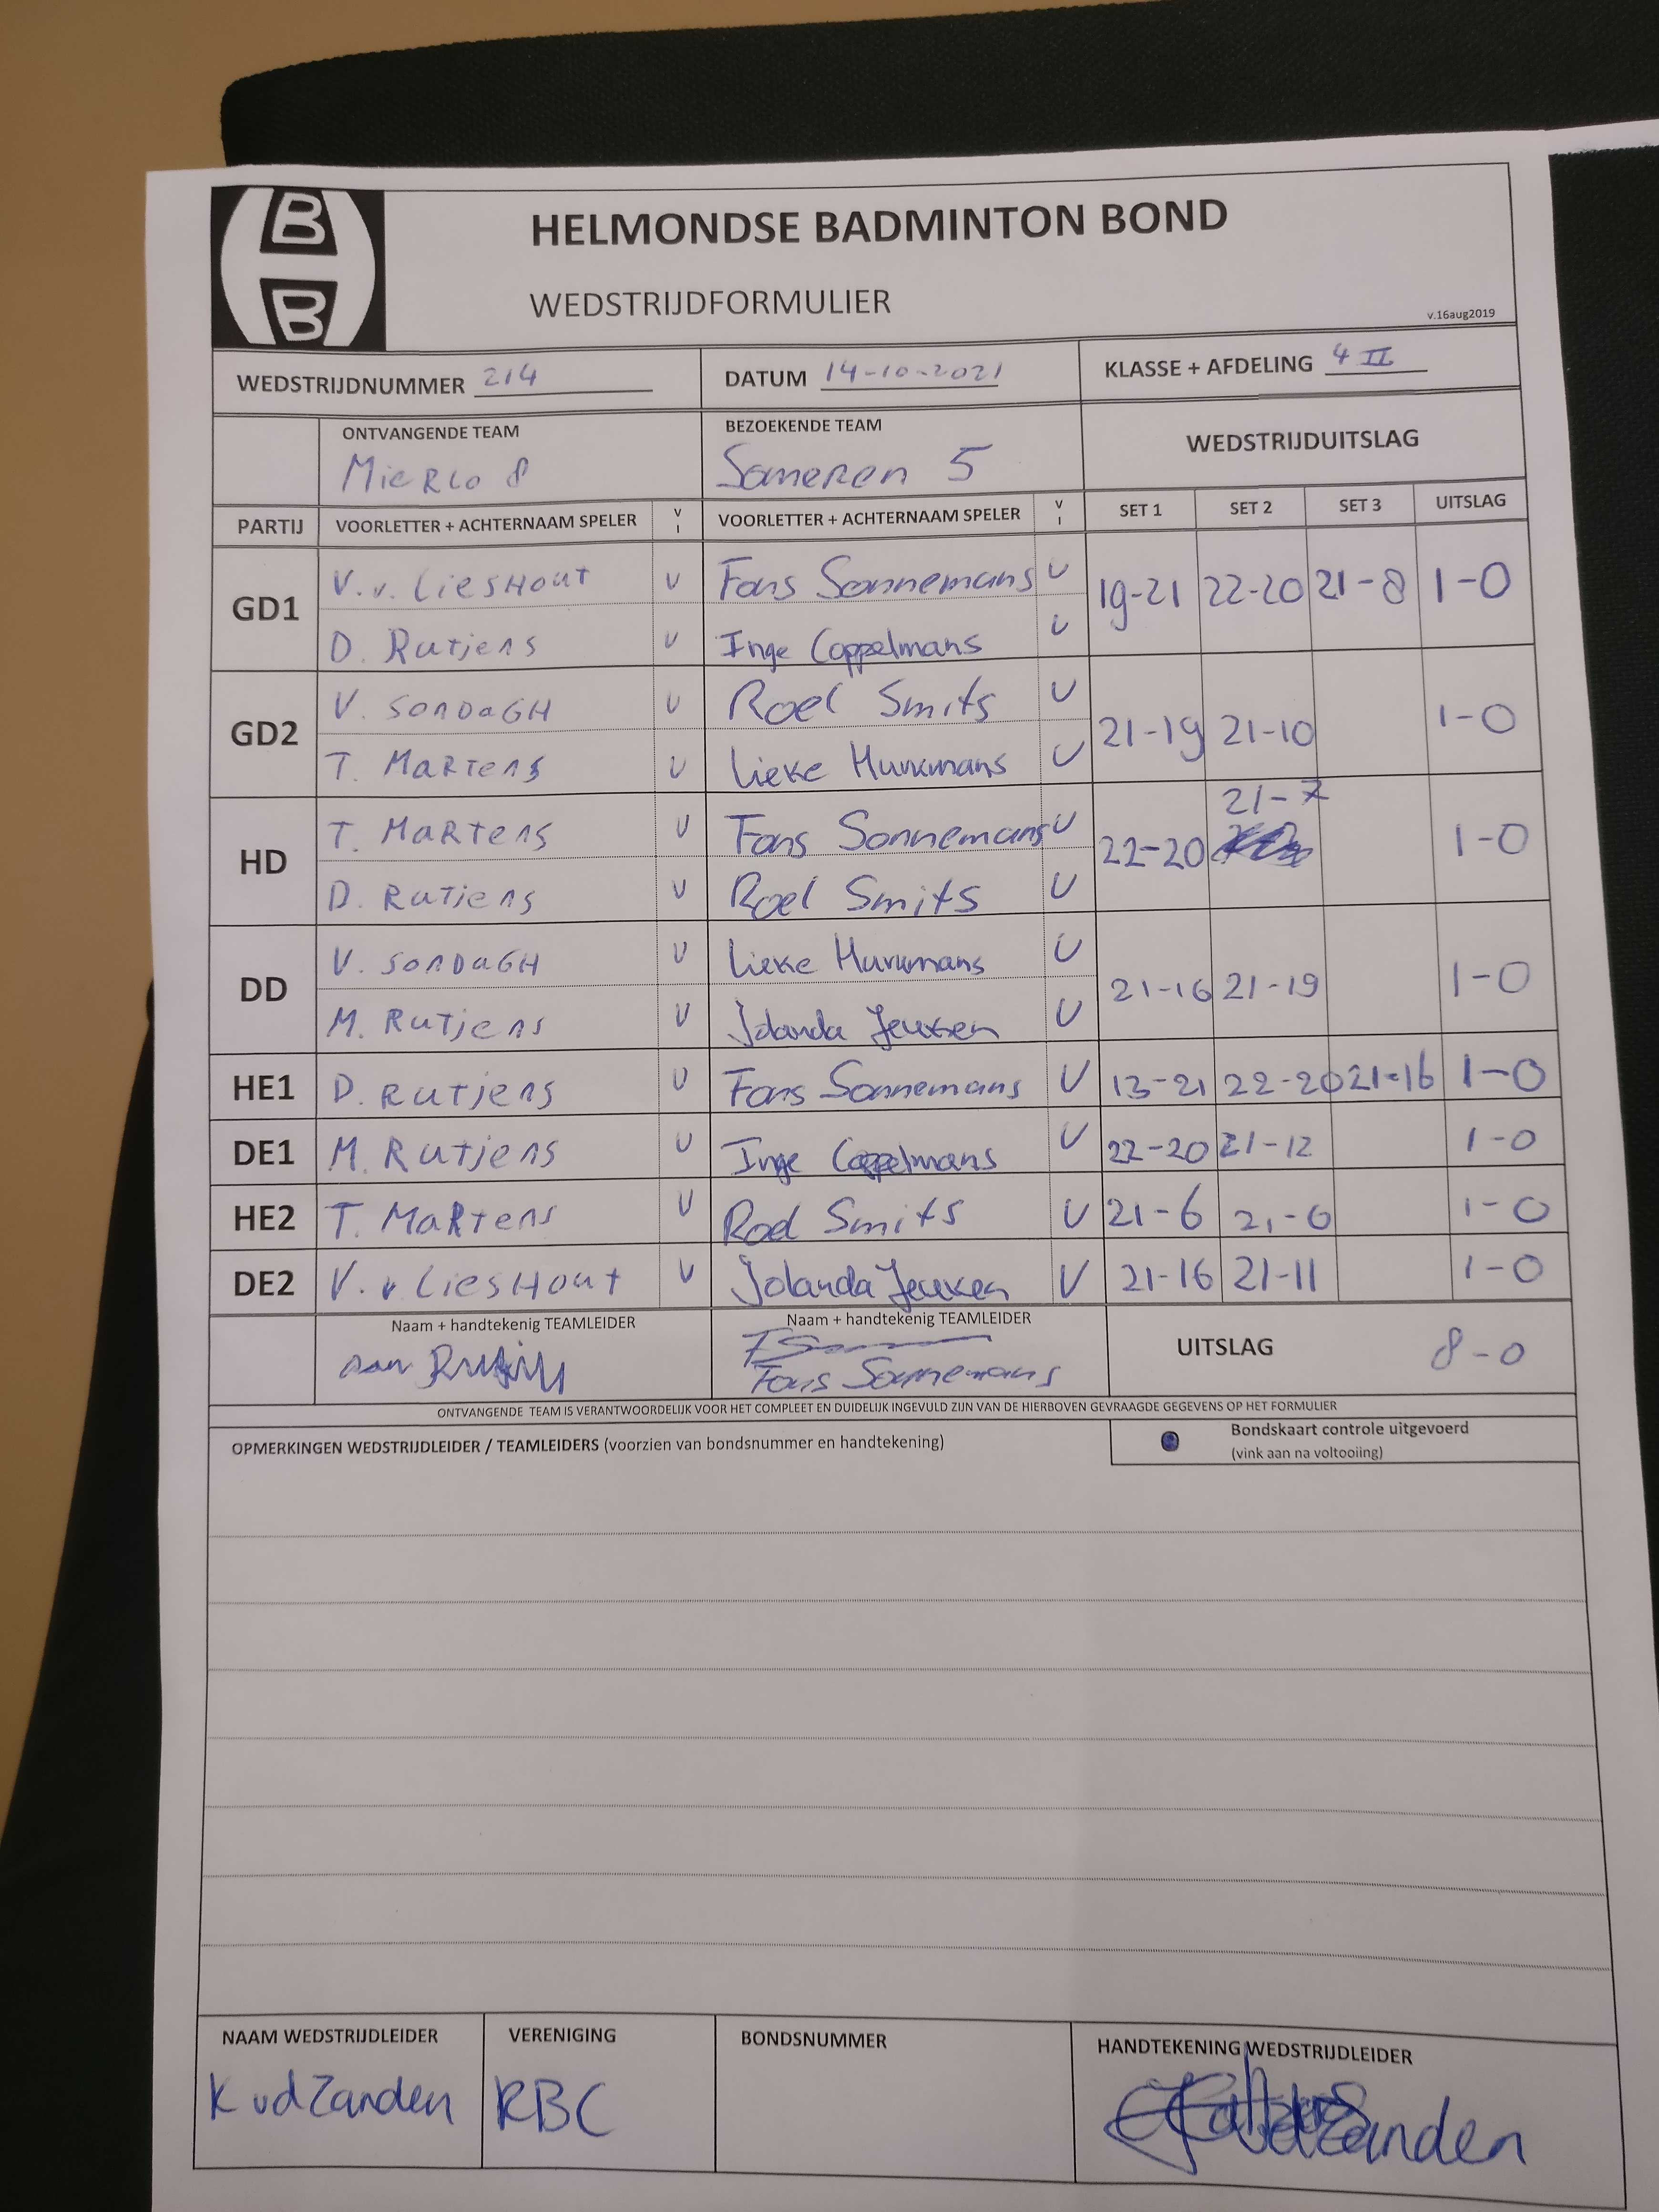 B
B
HELMONDSE BADMINTON BOND
WEDSTRIJDFORMULIER
v.16aug2019
WEDSTRIJDNUMMER 214 DATUM 14-10-2021 KLASSE + AFDELING 4 II
ONTVANGENDE TEAM BEZOEKENDE TEAM WEDSTRIJDUITSLAG
Mierlo 8 Someren 5
PARTIJ VOORLETTER + ACHTERNAAM SPELER V I VOORLETTER + ACHTERNAAM SPELER V I SET 1 SET 2 SET 3 UITSLAG
GD1 V.v. LiesHout V Fons Sonnemans V 19-21 22-20 21-8 1-0
D. Rutjens V Inge Coppelmans V
GD2 V. SonDaGH V Roel Smits V 21-19 21-10 1-0
T. MaRTens V Lieke Hurkmans V
HD T. MaRTens V Fons Sonnemans V 22-20 21-7 1-0
D. RuTjens V Roel Smits V
DD V. SonDaGH V Lieke Hurkmans V 21-16 21-19 1-0
M. RuTjens V Jolanda Jeuken V
HE1 D. RuTjens V Fons Sonnemans V 13-21 22-20 21-16 1-0
DE1 M. RuTjens V Inge Coppelmans V 22-20 21-12 1-0
HE2 T. MaRTens V Roel Smits V 21-6 21-6 1-0
DE2 V. v LiesHout V Jolanda Jeuken V 21-16 21-11 1-0
Naam + handtekenig TEAMLEIDER Naam + handtekenig TEAMLEIDER UITSLAG 8-0
Fons Sonnemans
ONTVANGENDE TEAM IS VERANTWOORDELIJK VOOR HET COMPLEET EN DUIDELIJK INGEVULD ZIJN VAN DE HIERBOVEN GEVRAAGDE GEGEVENS OP HET FORMULIER
OPMERKINGEN WEDSTRIJDLEIDER / TEAMLEIDERS (voorzien van bondsnummer en handtekening) Bondskaart controle uitgevoerd
(vink aan na voltooiing)
NAAM WEDSTRIJDLEIDER VERENIGING BONDSNUMMER HANDTEKENING WEDSTRIJDLEIDER
K vd Zanden RBC vdZanden